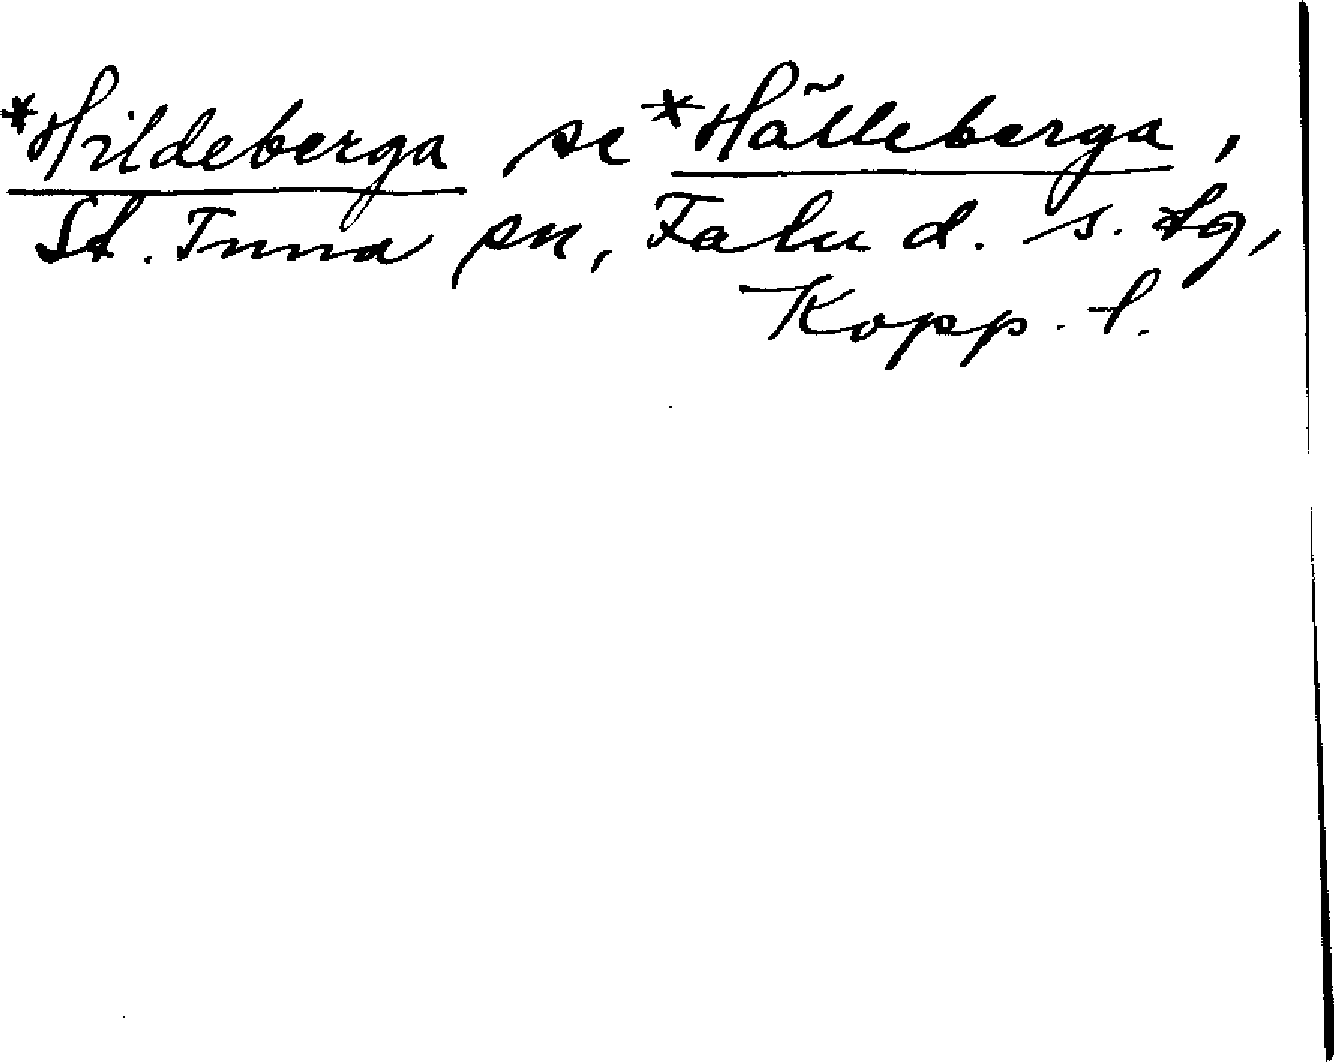 *Hildeberga se *Hälleberga,
St. Tuna sn, Falu d. s. tg,
Kopp. l.